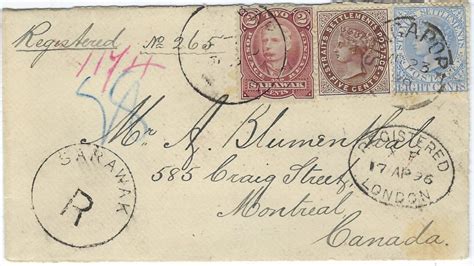 Registered No 265
1174
2 TWO 2
SARAWAK
CENTS
STRAITS SETTLEMENTS POSTAGE
FIVE CENTS
EIGHT CENTS
SINGAPORE
SARAWAK
R
REGISTERED
17 AP 96
LONDON
Mr. A. Blumenthal
585 Craig Street,
Montreal
Canada.